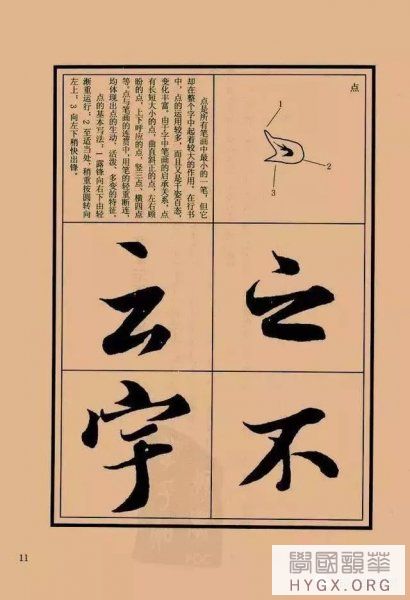 点
1
2
3
点是所有笔画中最小的一笔，但它
却在整个字中起着较大的作用。在行书
中，点的运用较多，而且又是千姿百态，
变化丰富。由于字中笔画的启承关系，点
有长短大小的点，曲直斜正的点，左右顾
盼的点，上下呼应的点，竖三点，横四点
等。点与笔画的连贯中，用笔的轻重断连，
均体现出点的生动、活泼、多变的特征。
点的基本写法：1 露锋向右下由轻
渐重运行；2 至适当处，稍重按圆转向
左上；3 向左下稍快出锋。
之
不
云
字
11
學國韻華
HYGX.ORG